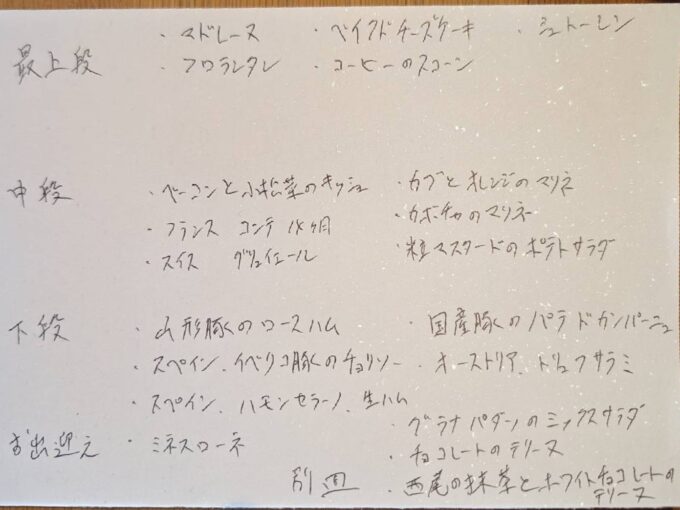 最上段
・マドレーヌ ・ベイクドチーズケーキ ・シュトーレン
・フロランタン ・コーヒーのスコーン
中段
・ベーコンと小松菜のキッシュ ・カブとオレンジのマリネ
・フランス コンテ 18ヶ月 ・カボチャのマリネ
・スイス グリュイエール ・粒マスタードのポテトサラダ
下段
・山形豚のロースハム ・国産豚のパテドカンパーニュ
・スペイン、イベリコ豚のチョリソー ・オーストリア、トリュフサラミ
・スペイン、ハモンセラーノ、生ハム
お出迎え ・ミネストローネ
別皿
・グラナパダーノのミックスサラダ
・チョコレートのテリーヌ
・西尾の抹茶とホワイトチョコレートの
テリーヌ